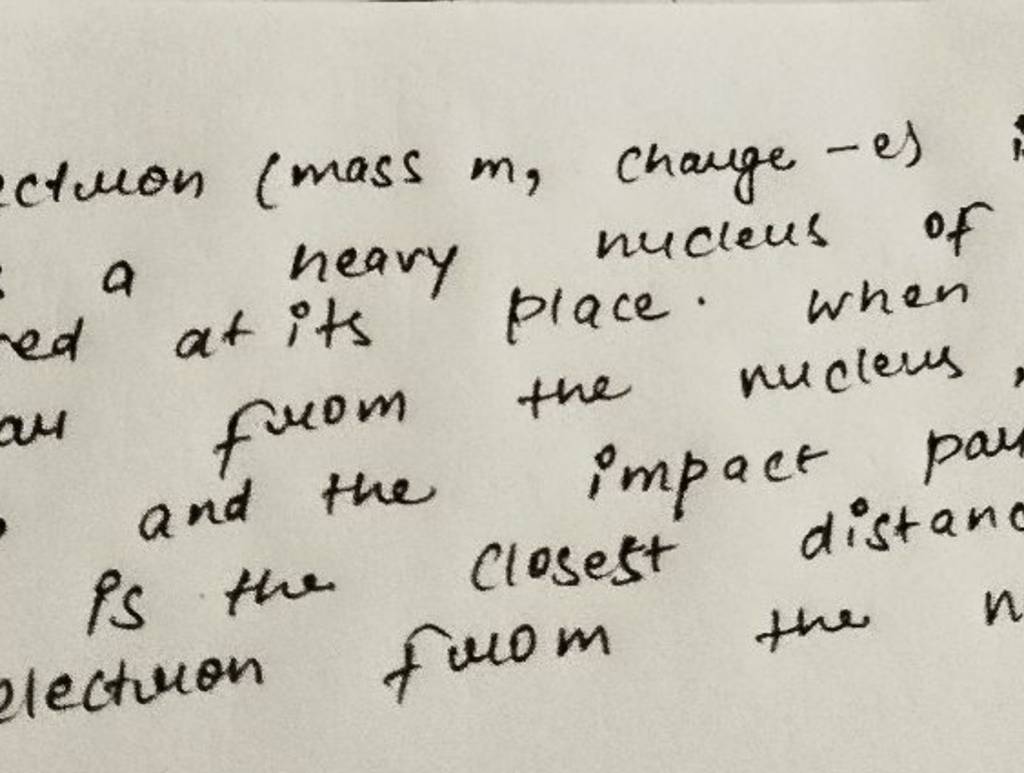 ectron (mass m, charge -e) i
a heavy nucleus of
red at its place. when
ar from the nucleus,
and the impact par
is the closest distanc
electron from the n